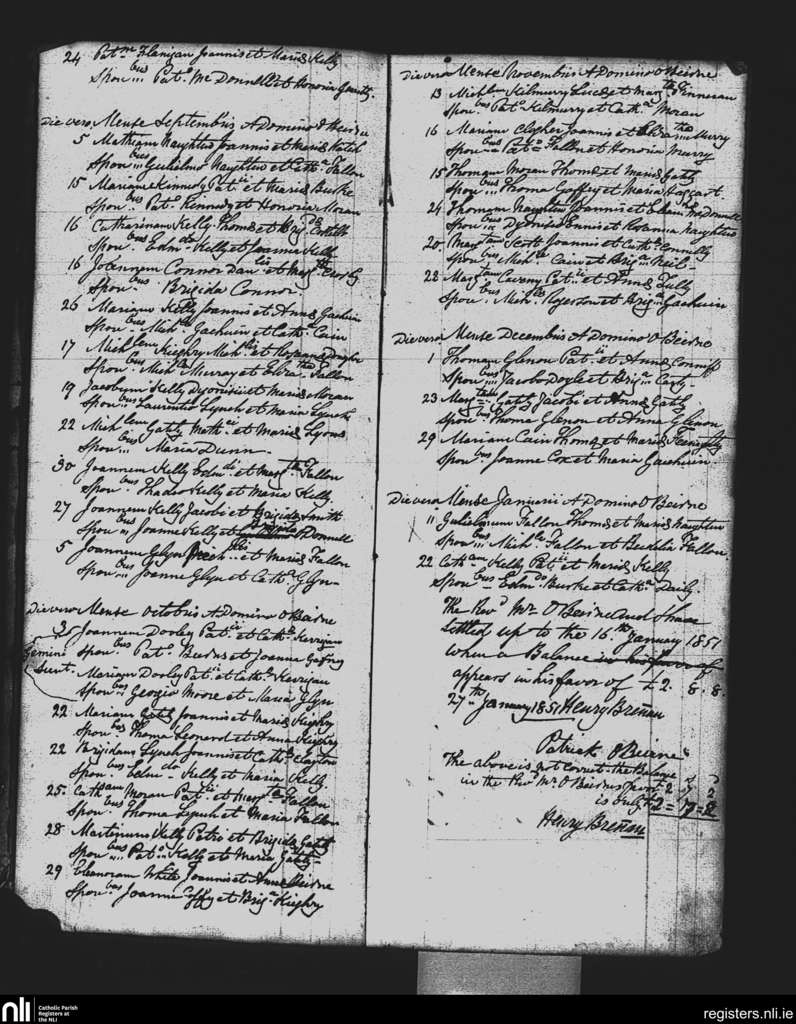 24 Pat.m Flanigan Joannis et Mariæ Kelly
Spon.bus Pat.o McDonnell et Honoria
Die vero Mense Septembris A Domino O Beirne
5 Mathiam Naughten Joannis et Mariæ
Spon.bus Gulielmo Naughten et Cath.a Fallon
15 Mariam Kennedy Pat.ii et Mariæ Burke
Spon.bus Pat.o Kennedy et Honoria Moran
16 Catharinam Kelly Thomæ et Brig.dæ Costello
Spon.bus Edm.do Kelly et Joanna Kelly
16 Joannem Connor Dan.lis et Marg.tæ
Spon.bus Brigida Connor.
26 Mariam Kelly Joannis et Annæ Gacheuin
Spon.bus Mich.le Gacheuin et Cath.a Cain
17 Mich.lem Kieghry Mich.lis et Rosannæ
Spon.bus Mich.le Murray et Eliz.tha Fallon
19 Jacobum Kelly Dyonisii et Mariæ Moran
Spon.bus Laurentio Lynch et Maria Lynch
22 Mich.lem Gately Math.æi et Mariæ Lyons
Spon.bus Maria Dunn.
30 Joannem Kelly Edm.di et Marg.tæ Fallon
Spon.bus Thadeo Kelly et Maria Kelly.
27 Joannem Kelly Jacobi et Brigidæ Smith
Spon.bus Joanne Kelly et Brigida Donnell
5 Joannem Glyn Mich.lis et Mariæ Fallon
Spon.bus Joanne Glyn et Cath.a Glyn
Die vero Mense Octobris A Domino O Beirne
Joannem Dooley Pat.ii et Cath.æ Kerrigan
Gemini Spon.bus Pat.o Burns et Joanna Gafney
Sunt. Mariam Dooley Pat.ii et Cath.æ Kerrigan
Spon.bus Georgio Moore et Maria Glyn
22 Mariam Gately Joannis et Mariæ Kieghry
Spon.bus Thoma Leonard et Anna Kieghry
22 Brigidam Lynch Joannis et Cath.æ Clayton
Spon.bus Edm.do Kelly et Maria Kelly.
25 Cath.am Moran Pat.ii et Marg.tæ Fallon
Spon.bus Thoma Lynch et Maria Fallon
28 Martinum Kelly Petri et Brigidæ Gately
Spon.bus Pat.o Kelly et Maria Gately
29 Eleanoram White Joannis et Annæ Beirne
Spon.bus Joanne et Brig.a Kieghry
Die vero Mense Novembris A Domino O Beirne
13 Mich.lem Kilmurry Lucæ et Marg.tæ Finneran
Spon.bus Pat.o Kilmurry et Cath.a Moran
16 Mariam Clogher Joannis et Eliz.thæ Murry
Spon.bus Pat.o Fallon et Honoria Murry
15 Thomam Moran Thomæ et Mariæ Gately
Spon.bus Thoma Gaffey et Maria
24 Thomam Naughten Joannis et McDonnell
Spon.bus Dyonisio Ennis et Rosanna Naughten
20 Marg.tam Scott Joannis et Cath.æ Connelly
Spon.bus Mich.le Cain et Brig.a Neil
28 Marg.tam Caveny Pat.ii et Annæ Tully
Spon.bus Mich.le Rogerson et Brig.a Gacheuin
Die vero Mense Decembris A Domino O Beirne
1 Thomam Glenon Pat.ii et Annæ Conniff
Spon.bus Jacobo Doyle et Brig.a Carty
23 Marg.tam Gately Jacobi et Annæ Gately
Spon.bus Thoma Glenon et Anna Glenon
29 Mariam Cain Thomæ et Mariæ
Spon.bus Joanne Cox et Maria Gacheuin.
Die vero Mense Januarii A Domino O Beirne
11 Gulielmum Fallon Thomæ et Mariæ Naughten
Spon.bus Mich.le Fallon et Bedelia Fallon
22 Cath.am Kelly Pat.ii et Mariæ Kelly
Spon.bus Edm.do Burke et Cath.a Daily.
The Rev.d Mr. O Beirne and I have
settled up to the 16.th January 1851
when a Balance in his favor of
appears in his favor of £2. 8. 8.
27th January 1851 Henry Brennan
Patrick O Beirne
The above is not correct. The Balance
in the Rev.d Mr. O Beirne's favor
is only £2 = 17 = 2
Henry Brennan
nli
Catholic Parish
Registers at
the NLI
registers.nli.ie